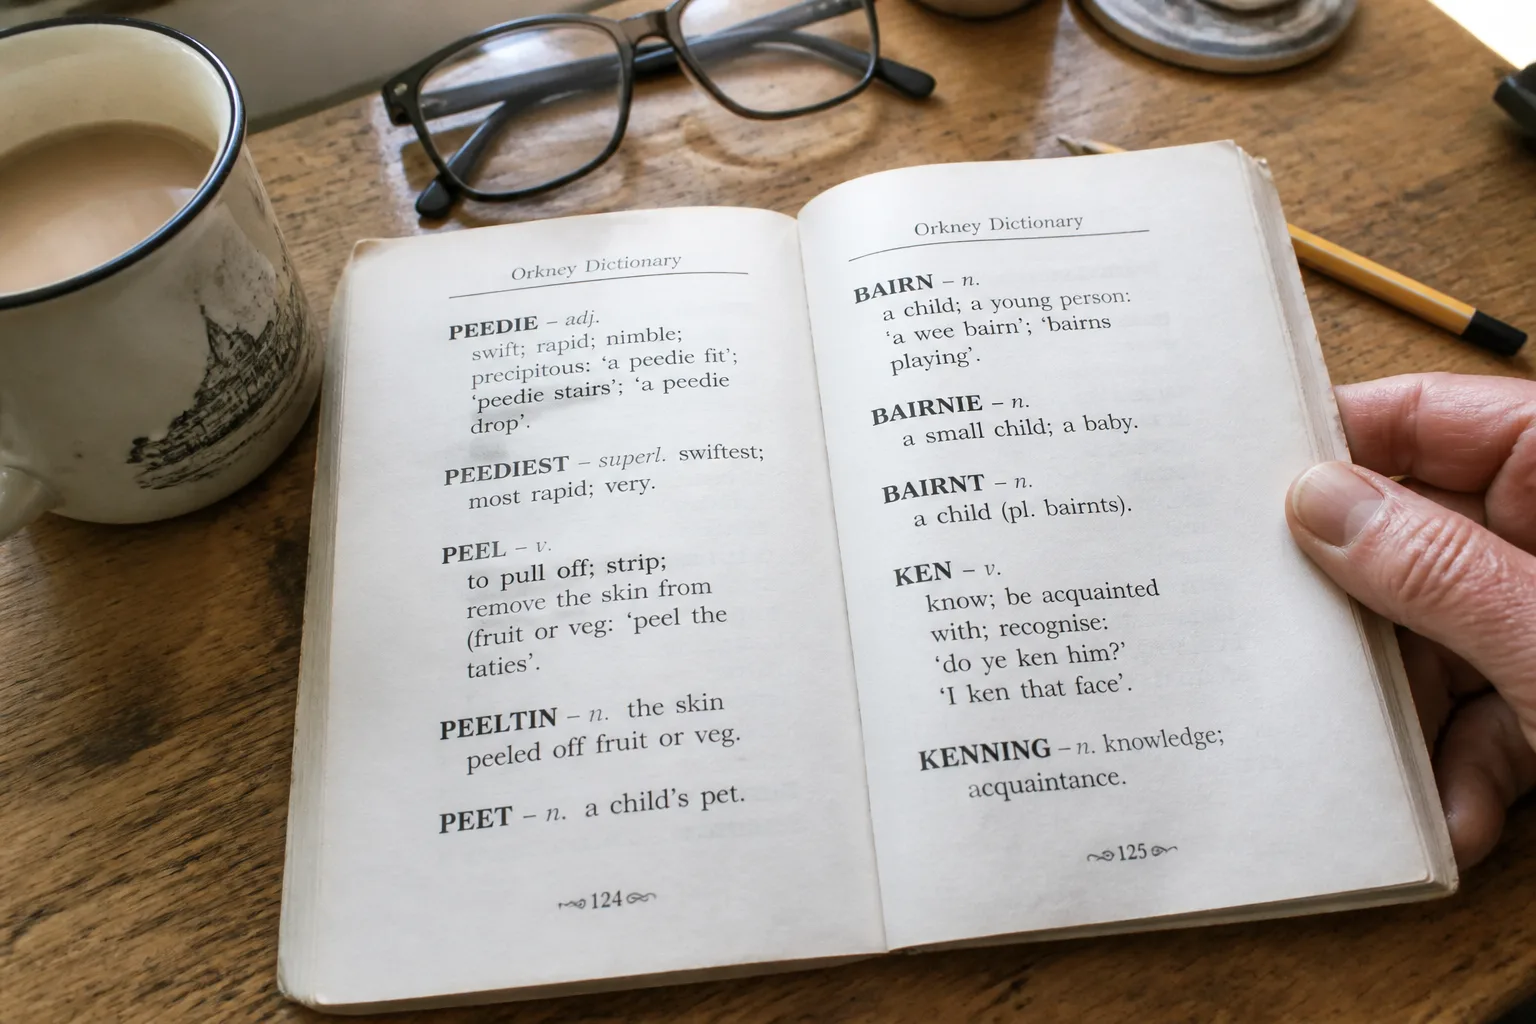 Orkney Dictionary
PEEDIE – adj.
swift; rapid; nimble;
precipitous: ‘a peedie fit’;
‘peedie stairs’; ‘a peedie
drop’.
PEEDIEST – superl. swiftest;
most rapid; very.
PEEL – v.
to pull off; strip;
remove the skin from
(fruit or veg: ‘peel the
taties’.
PEELTIN – n. the skin
peeled off fruit or veg.
PEET – n. a child’s pet.
124
Orkney Dictionary
BAIRN – n.
a child; a young person:
‘a wee bairn’; ‘bairns
playing’.
BAIRNIE – n.
a small child; a baby.
BAIRNT – n.
a child (pl. bairnts).
KEN – v.
know; be acquainted
with; recognise:
‘do ye ken him?’
‘I ken that face’.
KENNING – n. knowledge;
acquaintance.
125